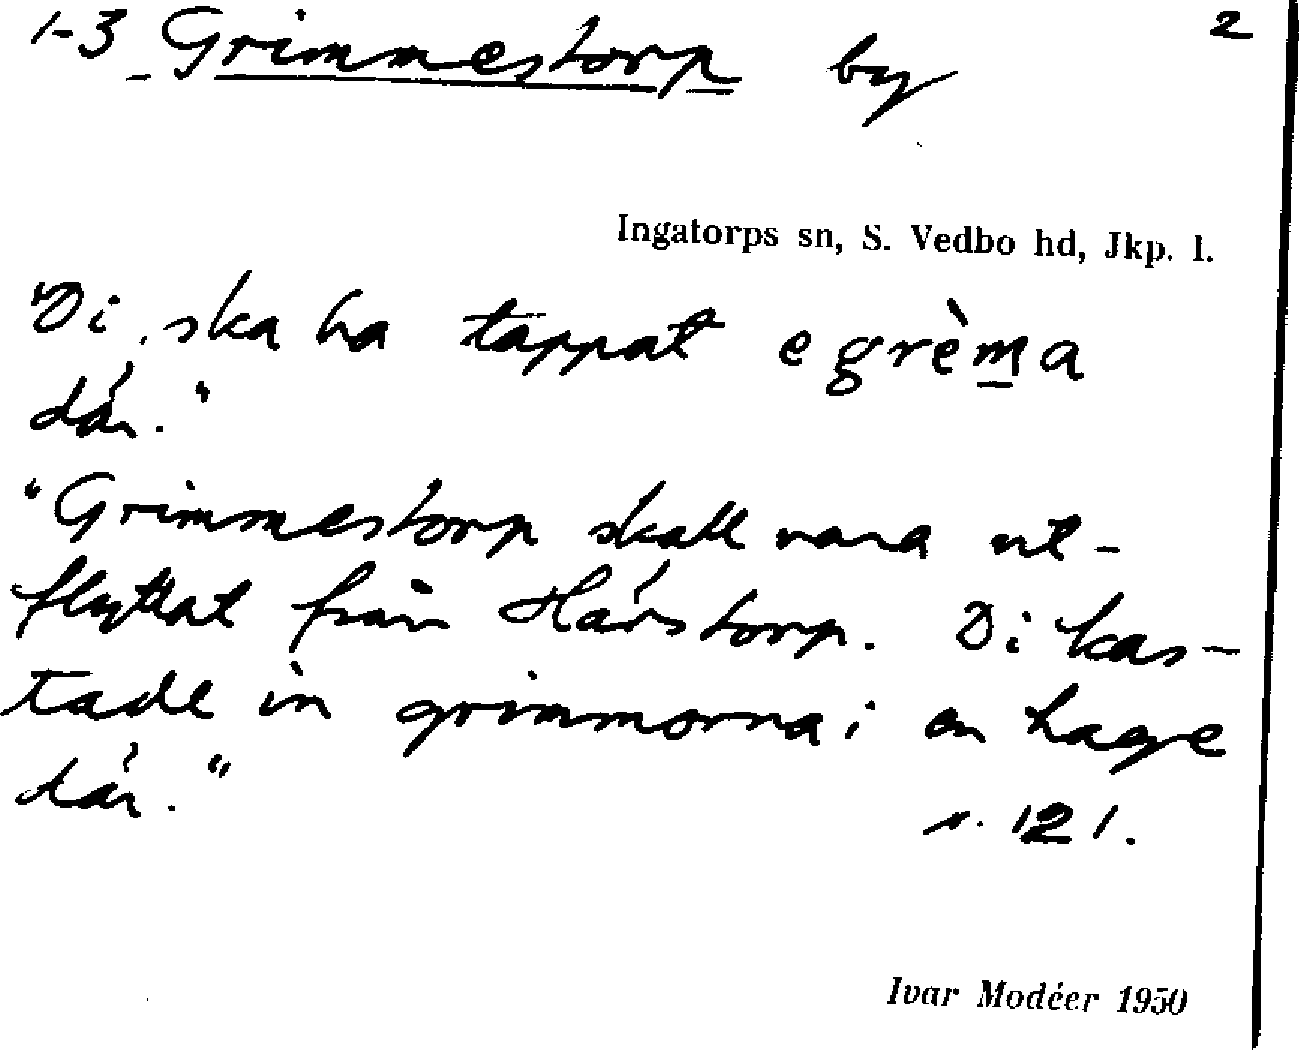 1-3 Grimmestorp by 2
Ingatorps sn, S. Vedbo hd, Jkp. l.
"Di ska ha tappat e grèma
där."
"Grimmestorp skall vara ut-
flyttat från Hårstorp. Di kas-
tade in grimmorna i en hage
där."
s. 121.
Ivar Modéer 1950